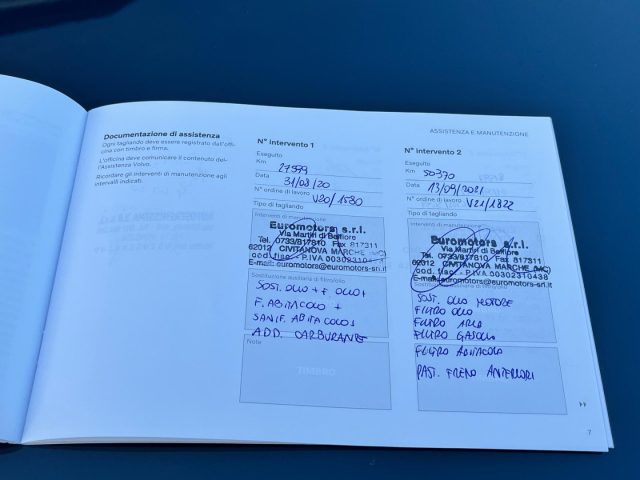 ASSISTENZA E MANUTENZIONE
Documentazione di assistenza
Ogni tagliando deve essere registrato dall'offi-
cina con timbro e firma.
L'officina deve comunicare il contenuto del-
l'Assistenza Volvo.
Ricordare gli interventi di manutenzione agli
intervalli indicati.
N° intervento 1
Eseguito
Km 27599
Data 31/08/20
N° ordine di lavoro V20/1580
Tipo di tagliando
Interventi di manutenzione
Euromotors s.r.l.
Via Martiri di Belfiore
Tel. 0733/817810 Fax 817311
62012 CIVITANOVA MARCHE (MC)
cod. fisc. - P.IVA 00302310438
E-mail: euromotors@euromotors-srl.it
Sostituzione ausiliaria di filtro/olio
SOST. OLIO + F. OLIO +
F. ABITACOLO +
SANIF. ABITACOLO +
ADD. CARBURANTE
Note
N° intervento 2
Eseguito
Km 50370
Data 13/09/2021
N° ordine di lavoro V21/1822
Tipo di tagliando
Interventi di manutenzione
Euromotors s.r.l.
Via Martiri di Belfiore
Tel. 0733/817810 Fax 817311
62012 CIVITANOVA MARCHE (MC)
cod. fisc. - P.IVA 00302310438
E-mail: euromotors@euromotors-srl.it
SOST. OLIO MOTORE
FILTRO OLIO
FILTRO ARIA
FILTRO GASOLIO
FILTRO ABITACOLO
PAST. FRENO ANTERIORI
7